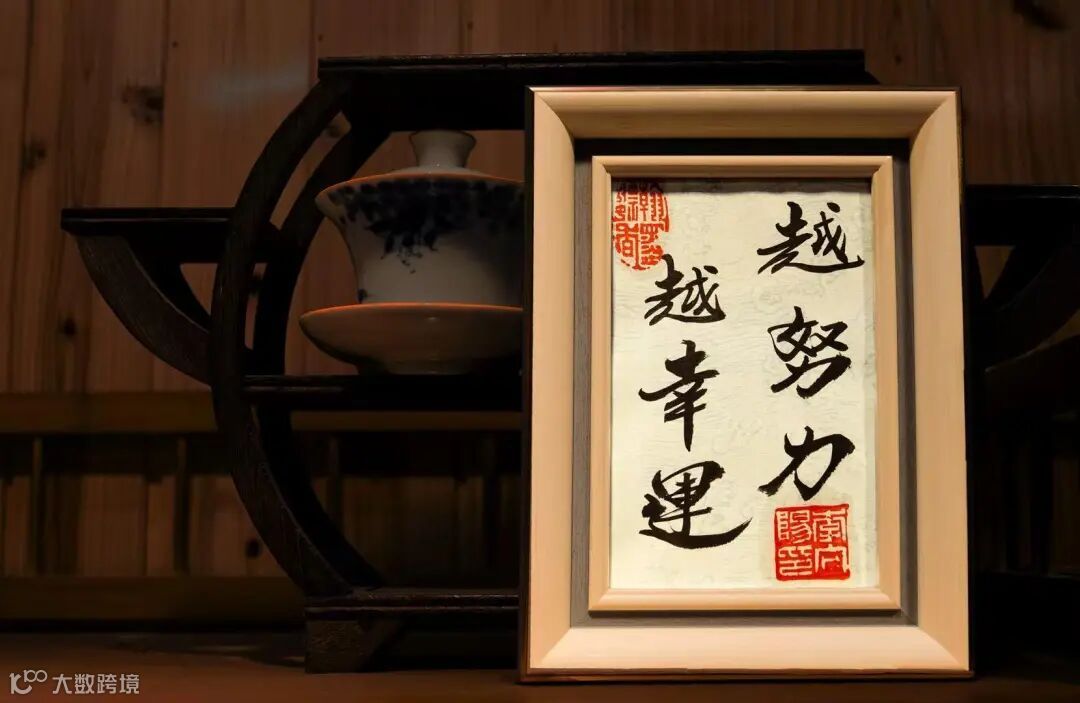 越努力
越幸運
大数跨境